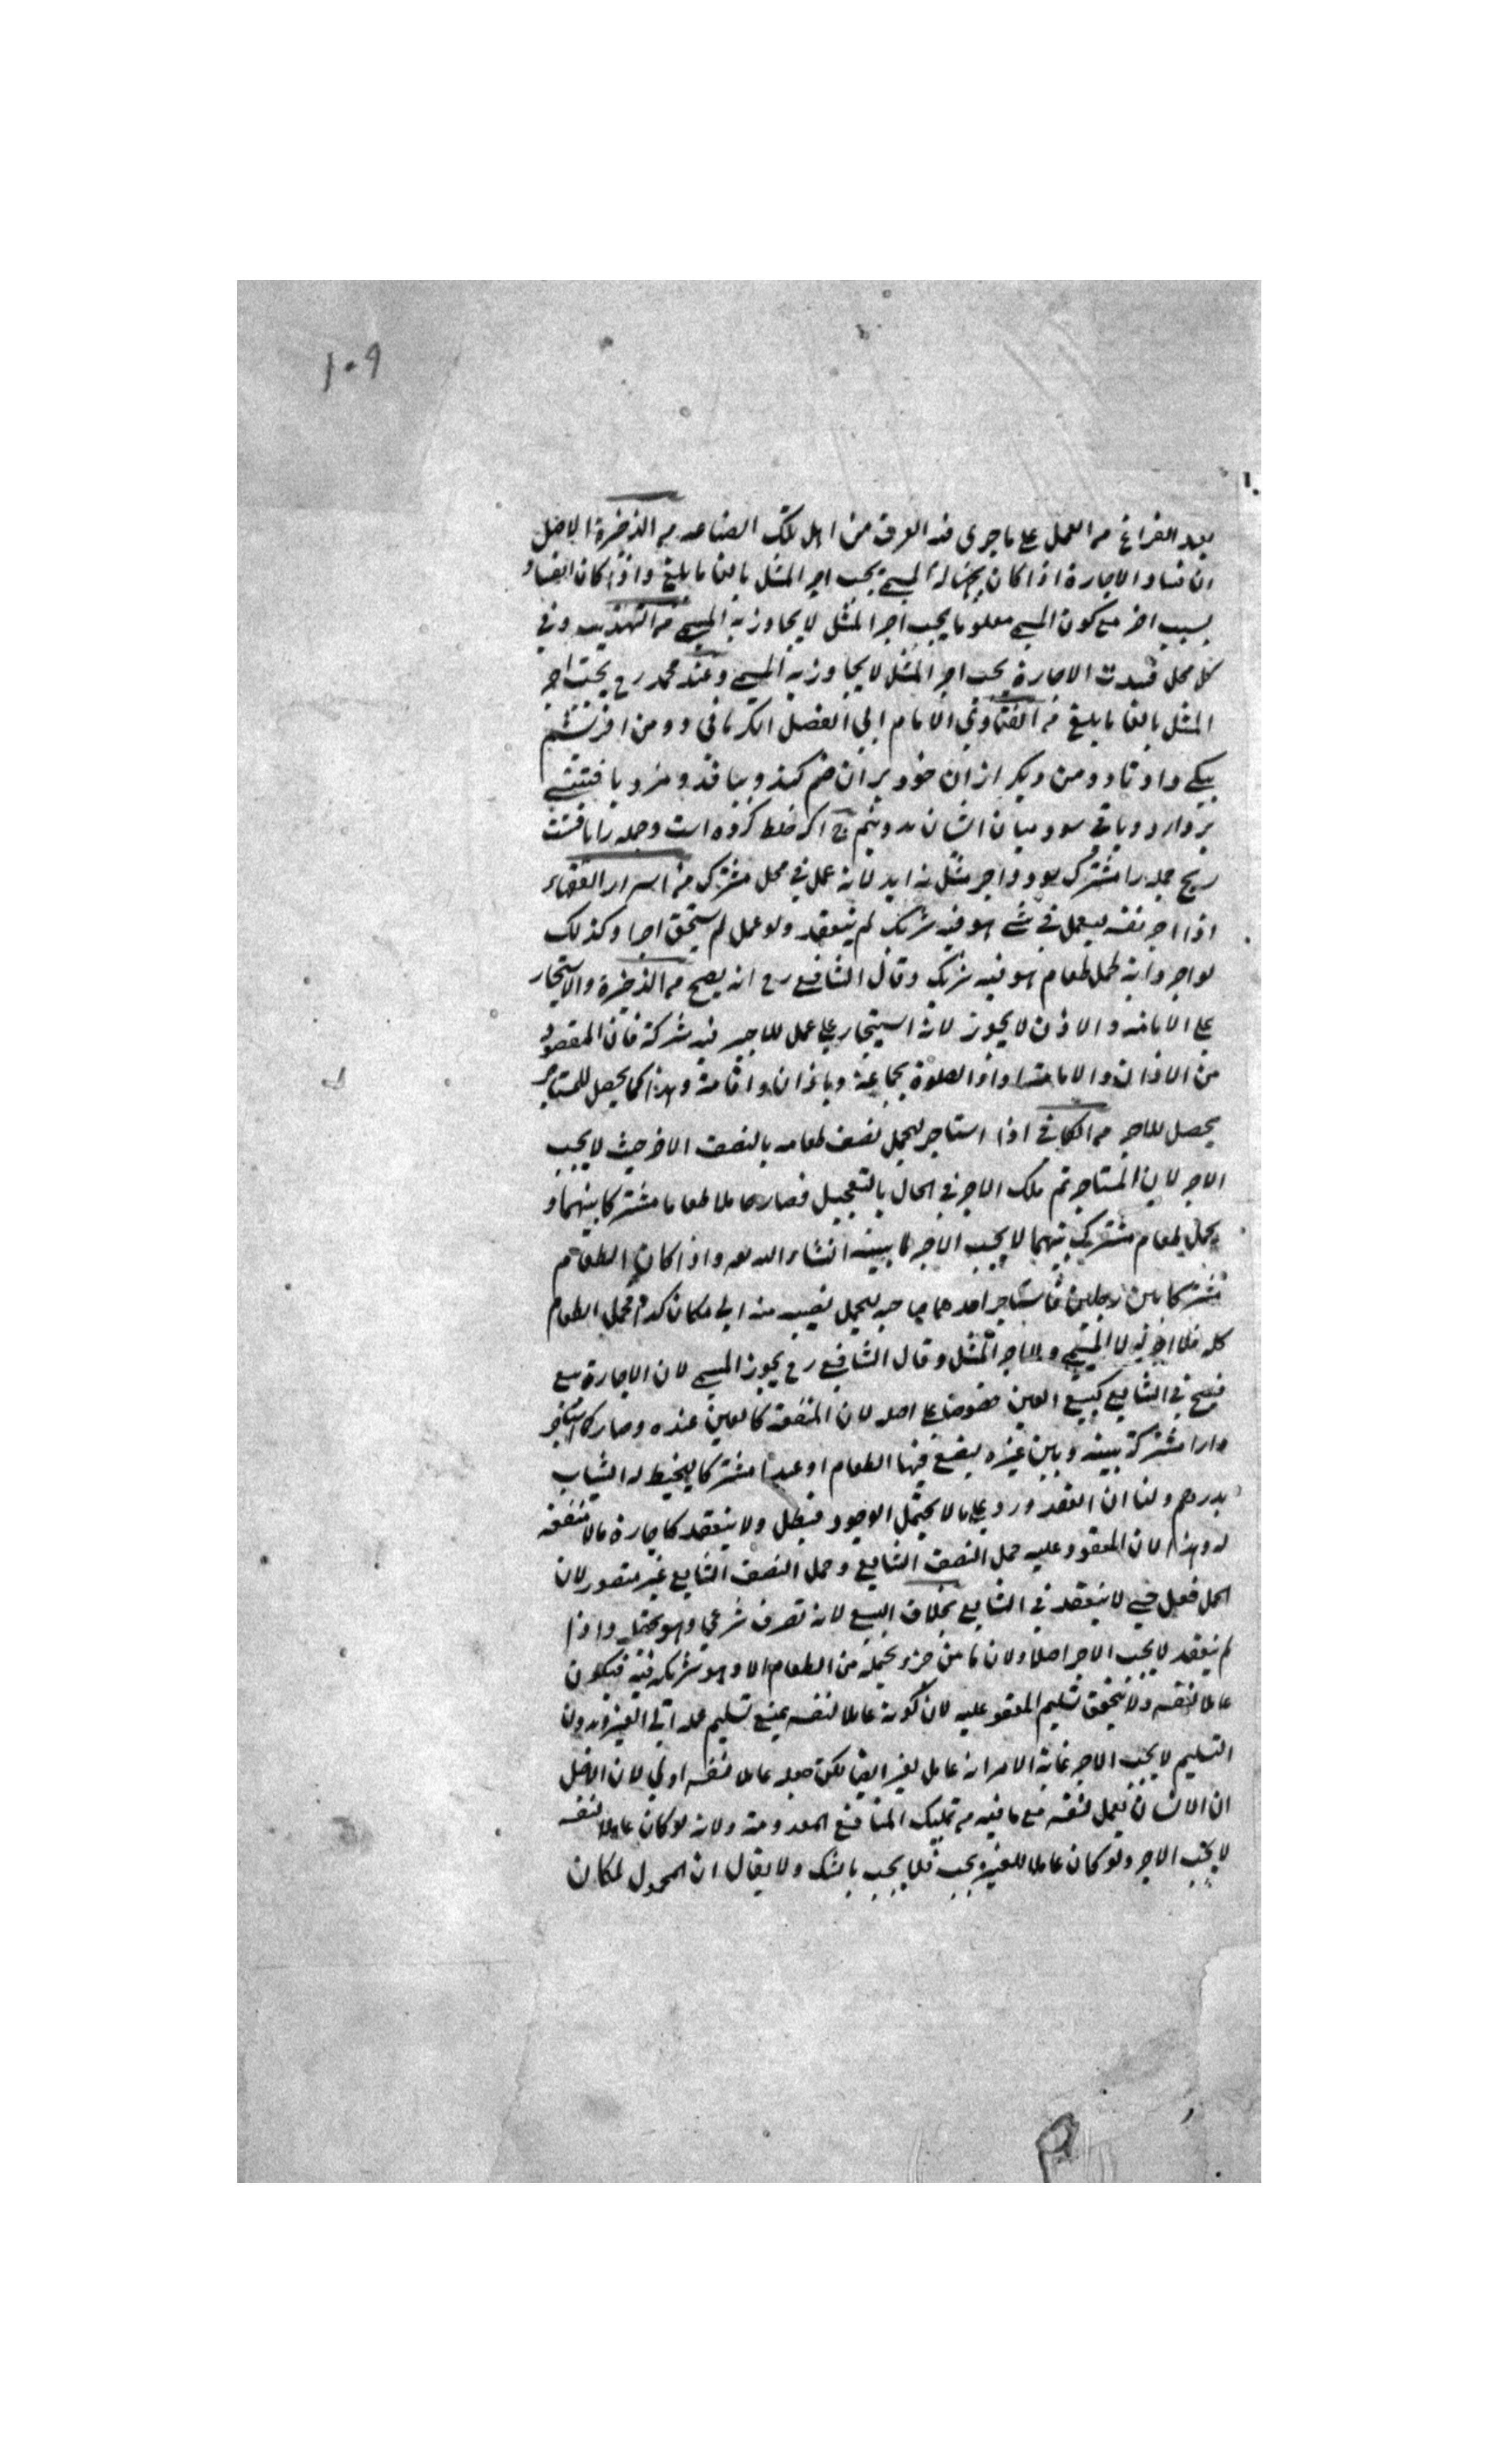 ١٠٩
بعد الفراغ من العمل على ما جرى فيه العرف من اهل تلك الصناعه من الذخيرة الاصل
ان فساد الاجارة اذا كان لجهالة المسمى يجب اجر المثل بالغا ما بلغ واذا كان الفساد
بسبب اخر مع كون المسمى معلوما يجب اجر المثل لا يجاوز به المسمى من التهذيب وفي
كل محل فسدت الاجارة يجب اجر المثل لا يجاوز به المسمى وعند محمد رح يجب اجر
المثل بالغا ما بلغ من الفتاوى الامام ابي الفضل الكرماني دو من ابريشم
بيكى داد تا دو من ديكر از ان خود بر ان ضم كند و ببافد و مزد بافتنى
بردارد و باقى سود ميان ايشان بدو نيم اكر خلط كرده است وجمله را بافت
ربح جمله را مشترك بود واجر مثل نه ايد لانه عمل في محل مشترك من اسرار الفقهاء
اذا اجر نفسه ليعمل في شئ هو فيه شريك لم ينعقد ولو عمل لم يستحق اجرا وكذلك
لو اجر دابة لحمل طعام هو فيه شريك وقال الشافعي رح انه يصح من الذخيرة والاستيجار
على الامامة والاذان لا يجوز لانه استيجار على عمل للاجير فيه شركة فان المقصود
من الاذان والامامة اداء الصلوة بجماعة وباذان واقامة وهذا كما يحصل للمستاجر
يحصل للاجر من الكافي اذا استاجر ليحمل نصف طعامه بالنصف الاخر حيث لا يجب
الاجر لان المستاجر تم ملك الاجر في الحال بالتعجيل فصار حاملا طعاما مشتركا بينهما و
بحمل طعام مشترك بينهما لا يجب الاجر لما يبينه انشاء الله تعه واذا كان الطعام
مشتركا بين رجلين فاستاجر احدهما صاحبه ليحمل نصيبه منه الى مكان كذا فحمل الطعام
كله فلا اجر له لا المسمى ولا اجر المثل وقال الشافعي رح يجوز المسمى لان الاجارة بيع
فصح في الشايع كبيع العين خصوصا على اصله لان المنفعة كالعين عنده وصار كما استاجر
دارا مشتركة بينه وبين غيره ليضع فيها الطعام او عبدا مشتركا ليخيط له الثياب
بدرهم ولنا ان العقد ورد على ما لا يحتمل الوجود فبطل ولا ينعقد كاجارة ما لا منفعة
له وهذا لان المعقود عليه حمل النصف الشايع وحمل النصف الشايع غير متصور لان
الحمل فعل حسي لا ينعقد في الشايع بخلاف البيع لانه تصرف شرعي وهو يحتمله واذا
لم ينعقد لا يجب الاجر اصلا ولان ما من جزء يحمله من الطعام الا وهو شريك فيه فيكون
عاملا لنفسه ولا يتحقق تسليم المعقود عليه لان كونه عاملا لنفسه يمنع تسليم عمله الى الغير وبدون
التسليم لا يجب الاجر غاية الامر انه عامل لغير ايضا لكن جعله عاملا لنفسه اولى لان الاصل
ان الانسان يعمل لنفسه مع ما فيه من تمليك المنافع المعدومة ولانه لو كان عاملا لنفسه
لا يجب الاجر ولو كان عاملا للغير يجب فلا يجب بالشك ولا يقال ان المحمول لمكان